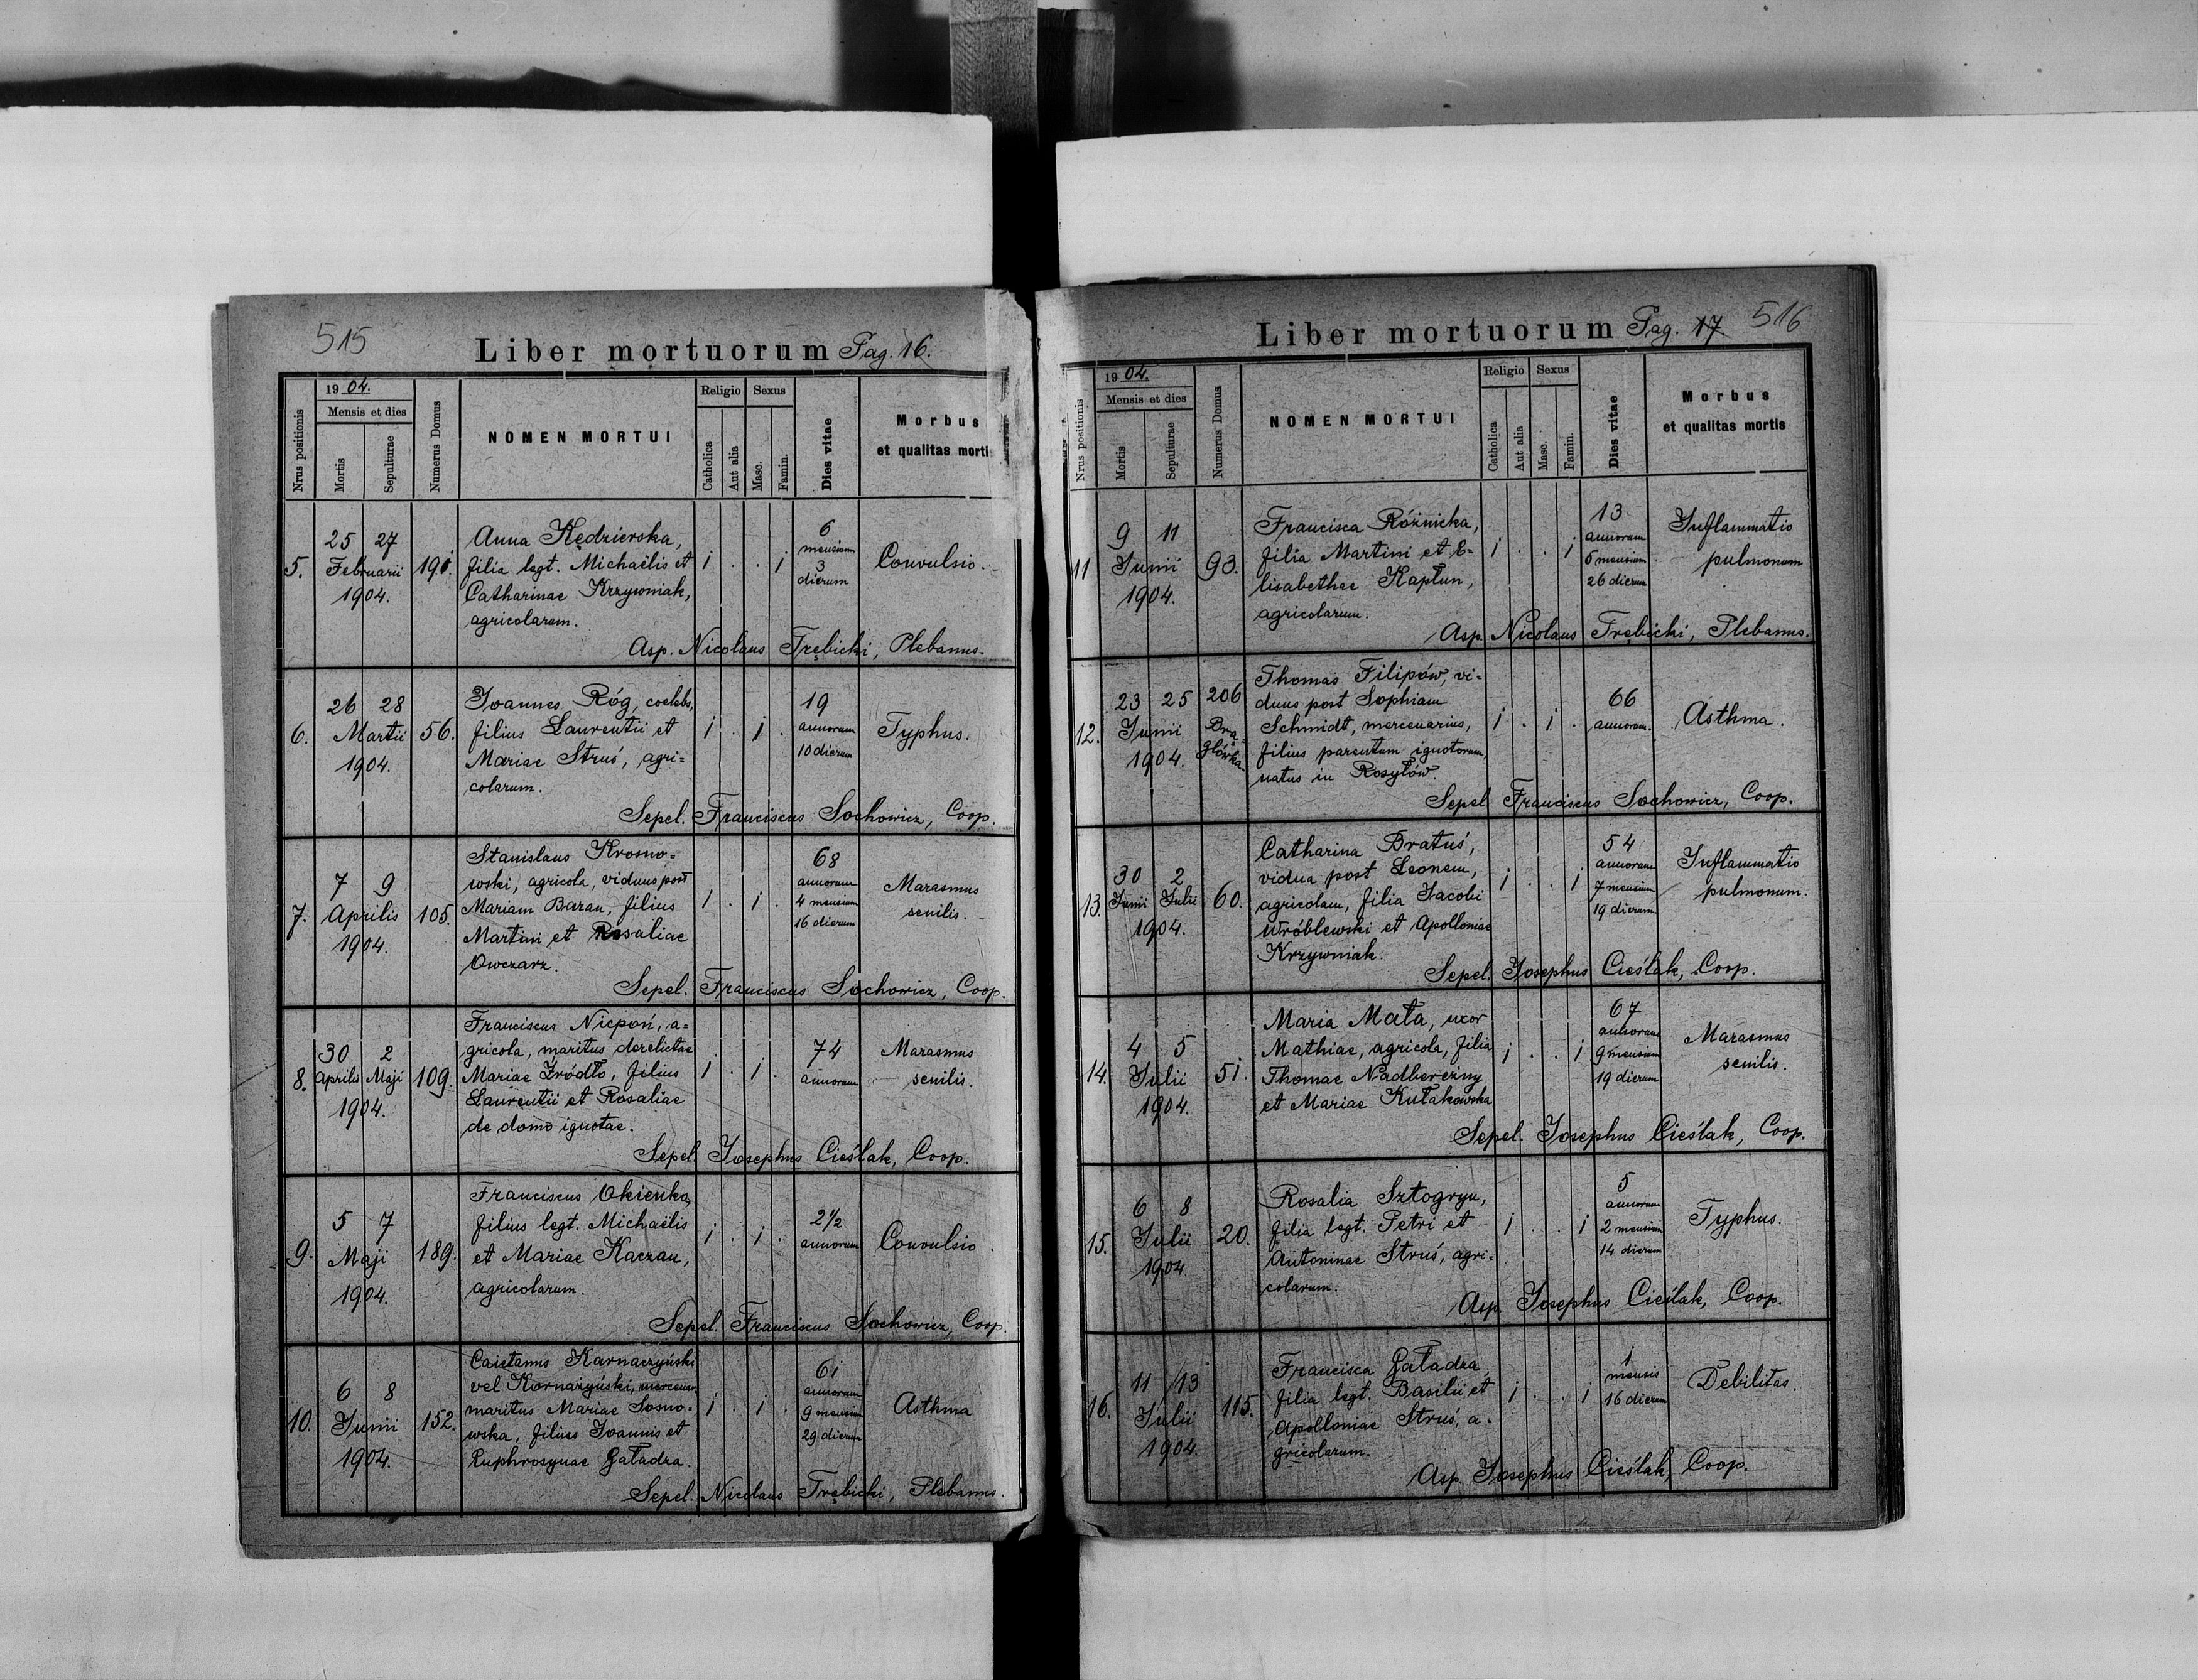 515
Liber mortuorum Pag. 16.
1904.
Mensis et dies
Religio Sexus
Nrus positionis
Mortis
Sepulturae
Numerus Domus
NOMEN MORTUI
Catholica
Aut alia
Masc.
Famin.
Dies vitae
Morbus
et qualitas morti
5.
25 27
Februarii
1904.
191.
Anna Kędzierska,
filia legt. Michaëlis et
Catharinae Krzywniak,
agricolarum.
1 . . 1
6
mensium
3
dierum
Convulsio.
Asp. Nicolaus Trębicki, Plebanus.
6.
26 28
Martii
1904.
56.
Joannes Róg, coelebs,
filius Laurentii et
Mariae Struś, agri=
colarum.
1 . 1 .
19
annorum
10 dierum
Typhus.
Sepel. Franciscus Sochowicz, Coop.
7.
7 9
Aprilis
1904.
105.
Stanislaus Krosno=
wski, agricola, viduus post
Mariam Baran, filius
Martini et Rosaliae
Owczarz.
1 . 1 .
68
annorum
4 mensium
16 dierum
Marasmus
senilis.
Sepel. Franciscus Sochowicz, Coop.
8.
30 2
Aprilis Maji
1904.
109.
Franciscus Niepoń, a=
gricola, maritus derelictae
Mariae Źródło, filius
Laurentii et Rosaliae
de domo ignotae.
1 . 1 .
74
annorum
Marasmus
senilis.
Sepel. Josephus Cieślak, Coop.
9.
5 7
Maji
1904.
189.
Franciscus Okienko,
filius legt. Michaëlis
et Mariae Kaczan,
agricolarum.
1 . 1 .
2½
annorum
Convulsio.
Sepel. Franciscus Sochowicz, Coop.
10.
6 8
Junii
1904.
152.
Caietanus Karnaczyński
vel Kornażyński, mercenar.
maritus Mariae Sosno=
wska, filius Joannis et
Euphrosynae Gaładza.
1 . 1 .
61
annorum
9 mensium
29 dierum
Asthma
Sepel. Nicolaus Trębicki, Plebanus.
516
Liber mortuorum Pag. 17.
1904.
Mensis et dies
Religio Sexus
Nrus positionis
Mortis
Sepulturae
Numerus Domus
NOMEN MORTUI
Catholica
Aut alia
Masc.
Famin.
Dies vitae
Morbus
et qualitas mortis
11
9 11
Junii
1904.
93.
Francisca Różnicka,
filia Martini et E=
lisabethae Kapłun,
agricolarum.
1 . . 1
13
annorum
5 mensium
26 dierum
Inflammatio
pulmonum
Asp. Nicolaus Trębicki, Plebanus.
12.
23 25
Junii
1904.
206
Brą=
glówka.
Thomas Filipów, vi=
duus post Sophiam
Schmidt, mercenarius,
filius parentum ignotorum,
natus in Rosyłów.
1 . 1 .
66
annorum.
Asthma.
Sepel Franciscus Sochowicz, Coop.
13.
30 2
Junii Julii
1904.
60.
Catharina Bratuś,
vidua post Leonem,
agricolam, filia Jacobi
Wróblewski et Apolloniae
Krzywniak.
1 . . 1
54
annorum
7 mensium
19 dierum
Inflammatio
pulmonum.
Sepel. Josephus Cieślak, Coop.
14.
4 5
Julii
1904.
51.
Maria Mała, uxor
Mathiae, agricola, filia
Thomae Nadbereżny
et Mariae Kułakowska
1 . . 1
67
annorum
9 mensium
19 dierum
Marasmus
senilis.
Sepel. Josephus Cieślak, Coop.
15.
6 8
Julii
1904
20.
Rosalia Sztogryn,
filia legt. Petri et
Antoninae Struś, agri=
colarum.
1 . . 1
5
annorum
2 mensium
14 dierum
Typhus.
Asp. Josephus Cieślak, Coop.
16.
11 13
Julii
1904.
115.
Francisca Gaładza,
filia legt. Basilii et
Apolloniae Struś, a=
gricolarum.
1 . . 1
1
mensis
16 dierum
Debilitas.
Asp. Josephus Cieślak, Coop.